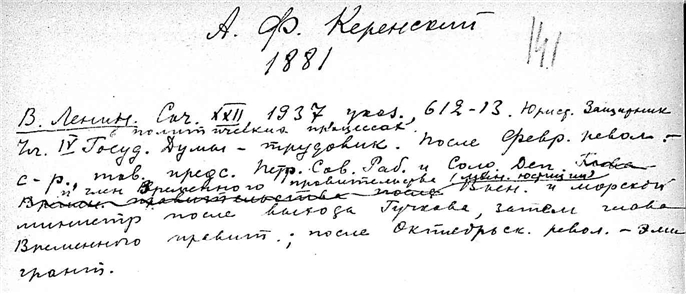 А. Ф. Керенский
141
1881
В. Ленин. Соч. XXII, 1937 указ., 612-13. Юрист. Защитник
в политических процессах.
Чл. IV Госуд. Думы – трудовик. После Февр. револ. –
с-р, тов. предс. Петр. Сов. Раб. и Солд. Деп. Глава
и член Временного правительства (мин. юстиции)
Времен. правительства после Воен. и морской
министр после выхода Гучкова, затем глава
Временного правит.; после Октябрьск. револ. – эми
грант.